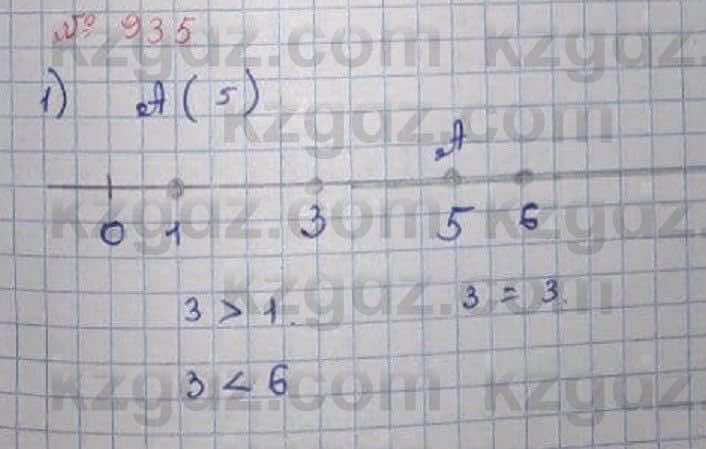 № 935
1) A(5)
A
0 1 3 5 6
3 > 1. 3 = 3.
3 < 6
kzgdz.com kzgdz.com
kzgdz.com
kzgdz.com kzgdz.com
kzgdz.com
kzgdz.com kzgdz.com